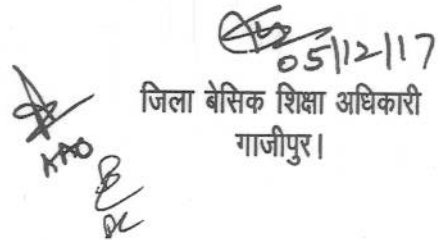 05/12/17
जिला बेसिक शिक्षा अधिकारी
गाजीपुर।
AAO
DC